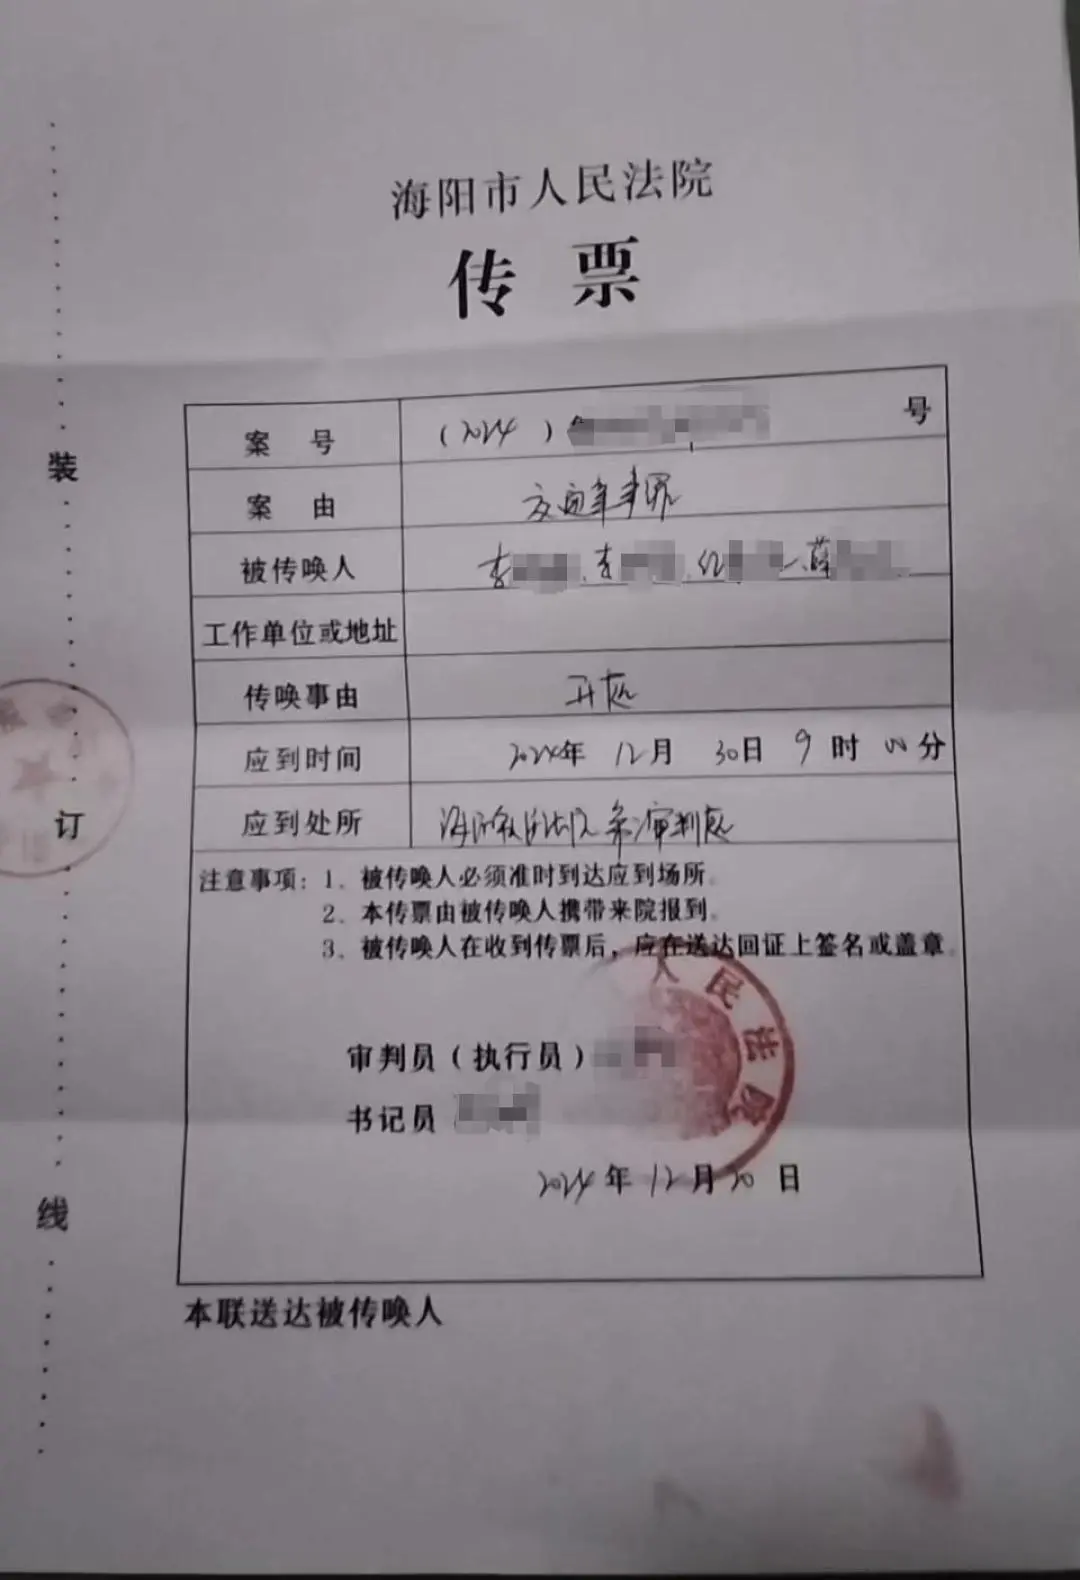 海阳市人民法院
传票
案号 (2024) 号
案由 交通肇事罪
被传唤人 李 、李 、 、薛
工作单位或地址
传唤事由 开庭
应到时间 2024年 12月 30日 9时 00分
应到处所 海阳 人民法院第 审判庭
注意事项：1、被传唤人必须准时到达应到场所。
2、本传票由被传唤人携带来院报到。
3、被传唤人在收到传票后，应在送达回证上签名或盖章。
人民法院
审判员（执行员）
书记员
2024年 12月 20日
本联送达被传唤人
装
订
线